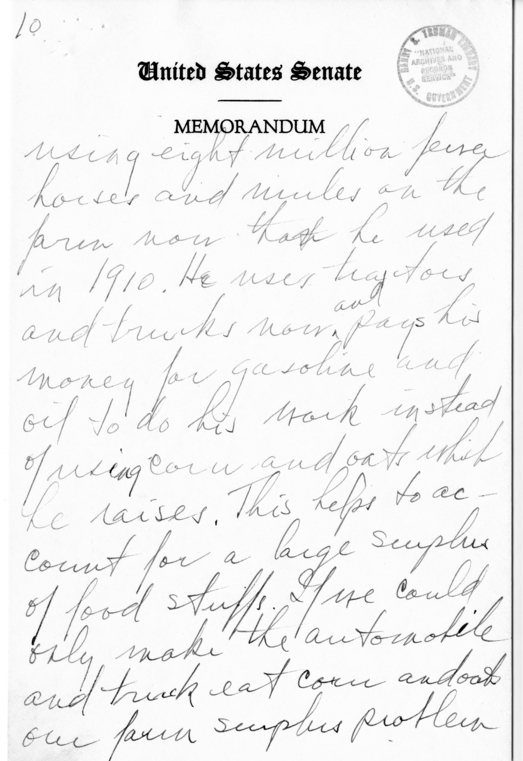 10
HARRY S. TRUMAN LIBRARY
"NATIONAL
ARCHIVES AND
RECORDS
SERVICE"
U.S. GOVERNMENT
United States Senate
MEMORANDUM
using eight million fewer
horses and mules on the
farm now than he used
in 1910. He uses tractors
and trucks now, and pays his
money for gasoline and
oil to do his work instead
of using corn and oats which
he raises. This helps to ac-
count for a large surplus
of food stuffs. If we could
only make the automobile
and truck eat corn and oats
our farm surplus problem